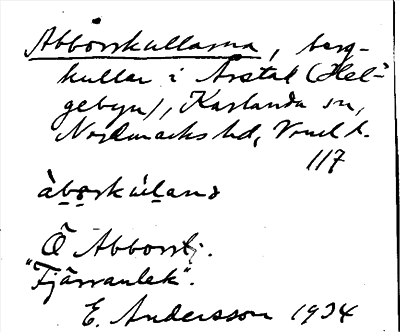 Abborrkullarna, berg-
kullar i Årstal (Hel-
gebyn), Karlanda sn,
Nordmarks hd, Vrml l.
117
àbo̭rkúl̬anə
Å Abborrtj.
"Fjärranlek".
E. Andersson 1934